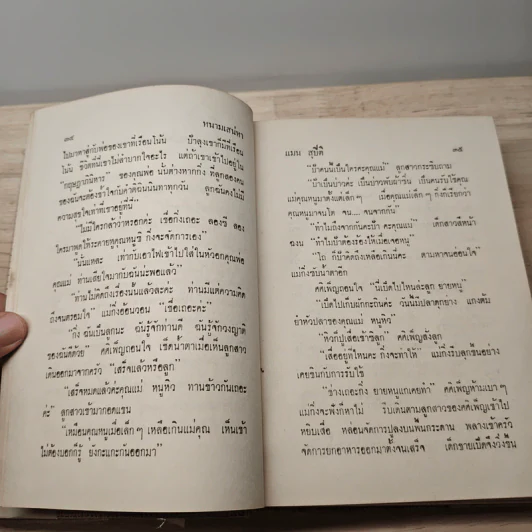 ๓๔
หนามเสน่หา
ไปมาหาลูกับพ่อของเขาที่เรือนโน้น ป้าลุงเขาก็มีที่เรือน
โน้น ชีวิตที่นี่เขาไม่ลำบากใจอะไร แต่ถ้าเขาเข้าไปอยู่ใน
ของคุณพ่อ นั่นต่างหากกิ่ง ที่ลูกสองคน
ของฉันจะต้องช้ำใจกับคำติฉินนินทาทุกวัน ลูกฉันคงไม่มี
ความสุขใจเท่าที่เขาอยู่ที่นี่"
"ไม่มีใครกล้าว่าหรอกค่ะ เชื่อกิ่งเถอะ ลองซี ลอง
ใครมาพูดให้ระคายหูคุณหนูซิ กิ่งจะจัดการเอง"
"นั่นแหละ เท่ากับเอาไฟเข้าไปใส่ในหัวอกคุณพ่อ
คุณแม่ ท่านเสียใจมากับฉันนะพอแล้ว"
"ท่านไม่คิดถึงเรื่องนั้นแล้วละค่ะ ท่านมีแต่ความคิด
ถึงจนตรอมใจ" แม่กิ่งอ้อนวอน "เชื่อเถอะค่ะ"
"กิ่ง ฉันเป็นลูกนะ ฉันรู้จักท่านดี ฉันรู้จักวงญาติ
ของฉันดีด้วย" คดีเพ็ญถอนใจ เช็ดน้ำตาเมื่อเห็นลูกสาว
เดินออกมาจากครัว "เสร็จแล้วหรือลูก"
"เสร็จหมดแล้วค่ะคุณแม่ หนูหิว ทานข้าวกันเถอะ
ค่ะ" ลูกสาวเข้ามากอดแขน
"เหมือนคุณหนูเมื่อเล็กๆ เหลือเกินแม่คุณ เห็นเข้า
ไม่ต้องบอกก็รู้ ยังกะแกะกันออกมา"
แมน สุปิติ
๓๕
"ป้าคนนี้เป็นใครคะคุณแม่" ลูกสาวกระซิบถาม
"ป้าเป็นบ่าวค่ะ เป็นบ่าวพับผ้าซิ่น เป็นคนรับใช้คุณ
แม่คุณหนูมาตั้งแต่เล็กๆ เมื่อคุณแม่เล็กๆ กิ่งก็เรียกว่า
คุณหนูมาจนโต จน... จนจากกัน"
"ทำไมถึงจากกันคะป้า คะคุณแม่" เด็กสาวสีหน้า
ฉงน "ทำไมป้าต้องร้องไห้เมื่อเจอหนู"
"โถ ก็ป้าคิดถึงเหลือเกินนี่คะ ตามหาจนอ่อนใจ"
แม่กิ่งซับน้ำตาอีก
คดีเพ็ญถอนใจ "นี่เป็ดไปไหนล่ะลูก ยายหนู"
"เป็ดไปเก็บผักกะถินค่ะ วันนี้มีปลาดุกย่าง แกงส้ม
ยำหัวปลีของคุณแม่ หนูหิว"
"หิวก็ปูเสื่อเข้าซิลูก" คดีเพ็ญสั่งลูก
"เสื่ออยู่ไหนคะ กิ่งจะทำให้" แม่กิ่งรีบลุกขึ้นอย่าง
เคยชินกับการรับใช้
"ช่างเถอะกิ่ง ยายหนูแกเคยทำ" คดีเพ็ญห้ามเบาๆ
แม่กิ่งจะฟังก็หาไม่ รีบเดินตามลูกสาวของคดีเพ็ญเข้าไป
หยิบเสื่อ หล่อนจัดการปูลงบนพื้นกระดาน พลางเข้าครัว
จัดการยกอาหารออกมาตั้งจนเสร็จ เด็กชายเป็ดจึงวิ่งขึ้น